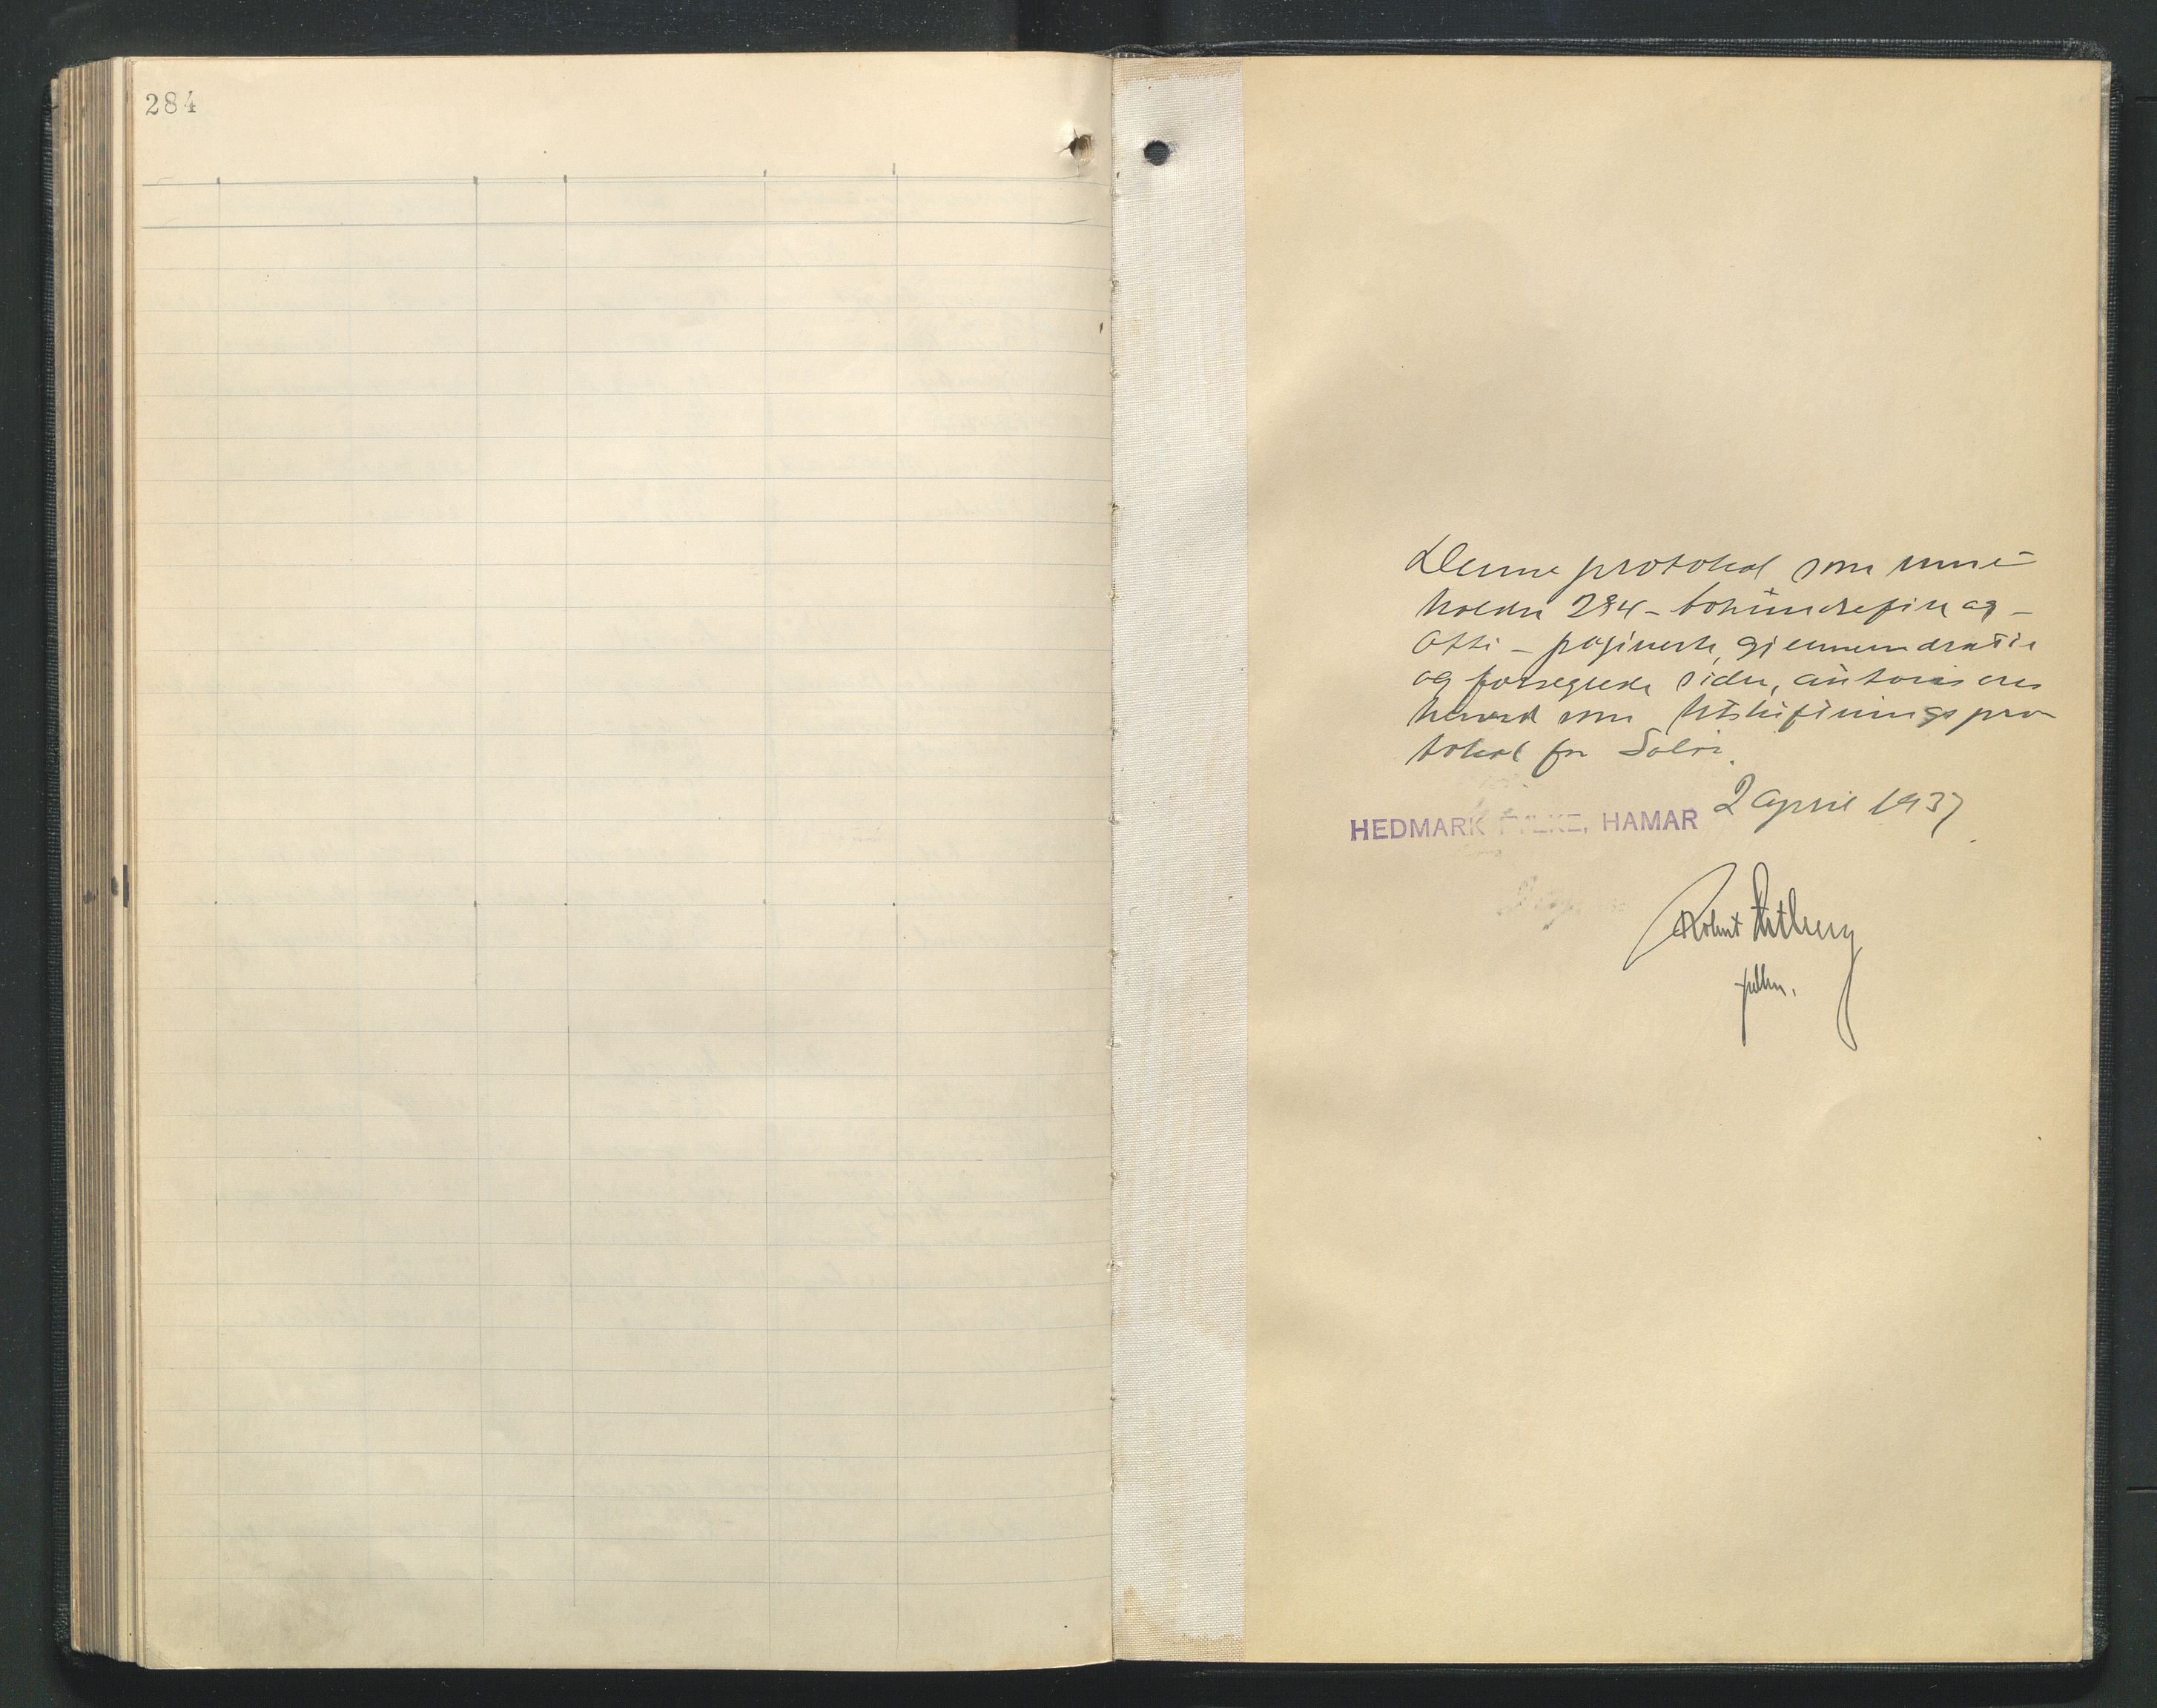 284
Denne protokol som inne-
holder 284 - tohundrefire og -
otti - paginerte, gjennemdratte
og forseglede sider, autoriseres
herved som utskiftningspro-
tokol for Solør.
HEDMARK FYLKE, HAMAR 2 april 1937
Robert